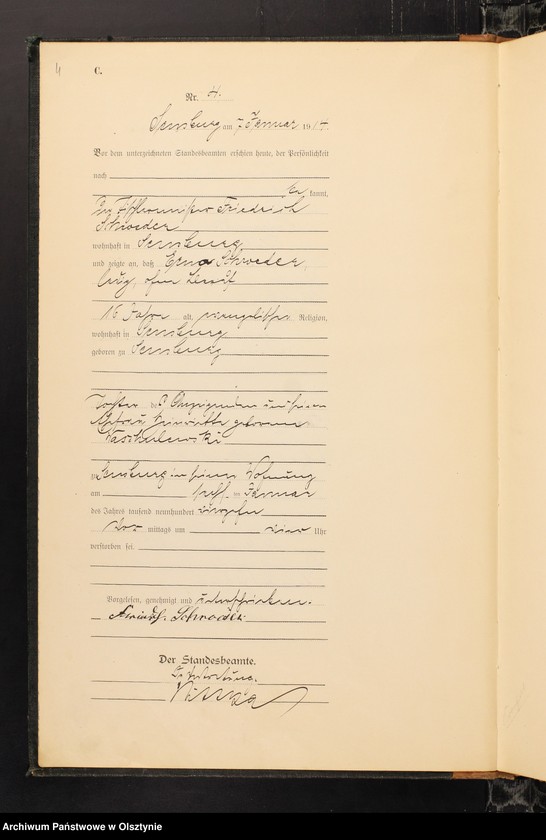 4
C.
Nr. 4.
Sensburg am 7. Januar 1914.
Vor dem unterzeichneten Standesbeamten erschien heute, der Persönlichkeit
nach
kannt,
Friedrich
Schroeder
wohnhaft in Sensburg
und zeigte an, daß Erna Schroeder,
ledig, ohne Beruf
16 Jahre alt, evangelischer Religion,
wohnhaft in Sensburg
geboren zu Sensburg
Tochter des Anzeigenden und seiner
Ehefrau Henriette geborenen
zu Sensburg in seiner Wohnung
am Januar
des Jahres tausend neunhundert vierzehn
vor mittags um vier Uhr
verstorben sei.
Vorgelesen, genehmigt und unterschrieben.
Friedrich Schroeder
Der Standesbeamte.
In Vertretung.
Archiwum Państwowe w Olsztynie